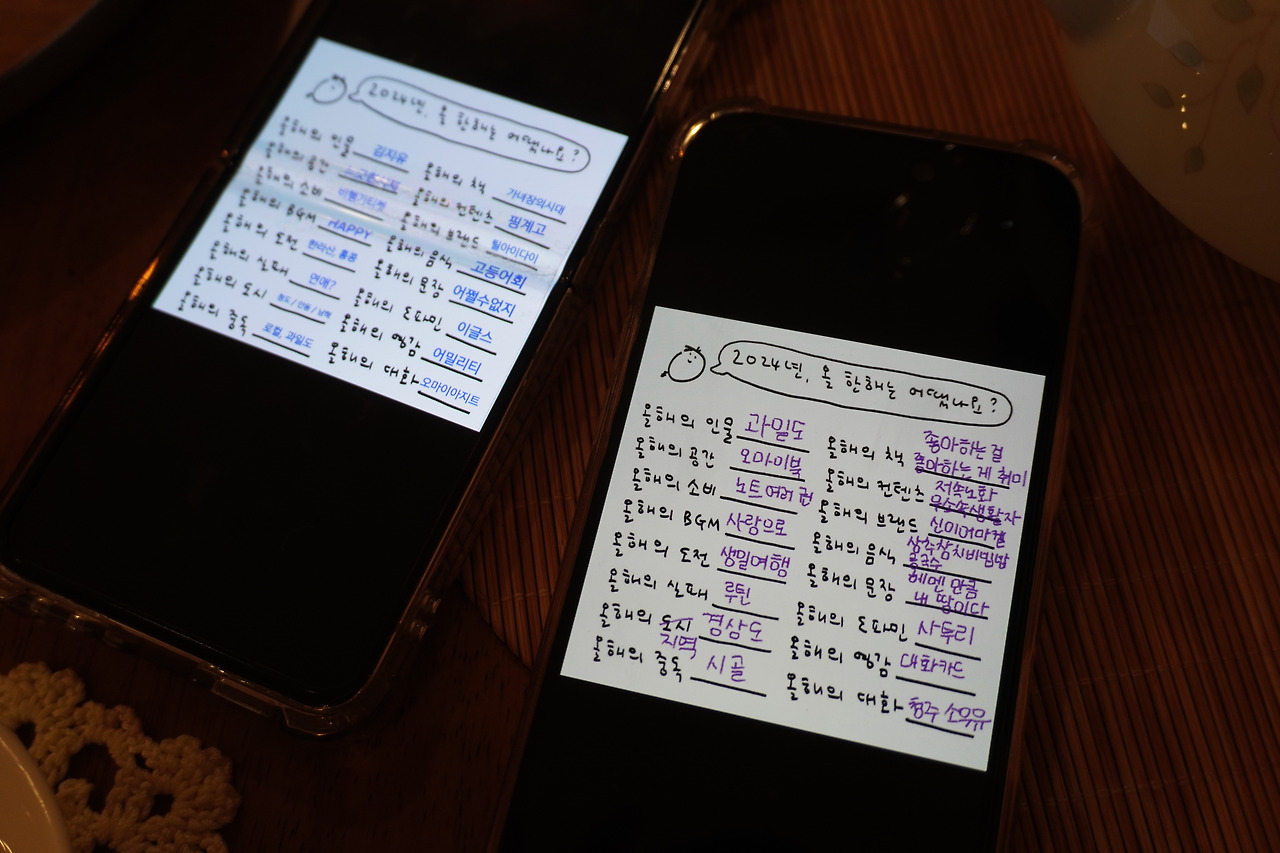 2024년, 올 한해는 어땠나요?
올해의 인물 김지유
올해의 공간
올해의 소비 비행기티켓
올해의 BGM HAPPY
올해의 도전 한라산, 홍콩
올해의 실패 연애?
올해의 도시 청도 / 안동 / 남해
올해의 중독 로컬, 과일도
올해의 책 가녀장의시대
올해의 컨텐츠 핑계고
올해의 브랜드 틸아이다이
올해의 음식 고등어회
올해의 문장 어쩔수없지
올해의 도파민 이글스
올해의 영감 어밀리티
올해의 대화 오마이아지트
2024년, 올 한해는 어땠나요?
올해의 인물 과일도
올해의 공간 오마이북
올해의 소비 노트 여러 권
올해의 BGM 사랑으로
올해의 도전 생일여행
올해의 실패 루틴
올해의 도시 경상도
지역
올해의 중독 시골
좋아하는 걸
올해의 책 좋아하는 게 취미
올해의 컨텐츠 저속노화
올해의 브랜드 신이어마켙
올해의 음식 상추삼치비빔밥
콩국수
헤맨 만큼
올해의 문장 내 땅이다
올해의 도파민 사투리
올해의 영감 대화카드
올해의 대화 청주 소우유